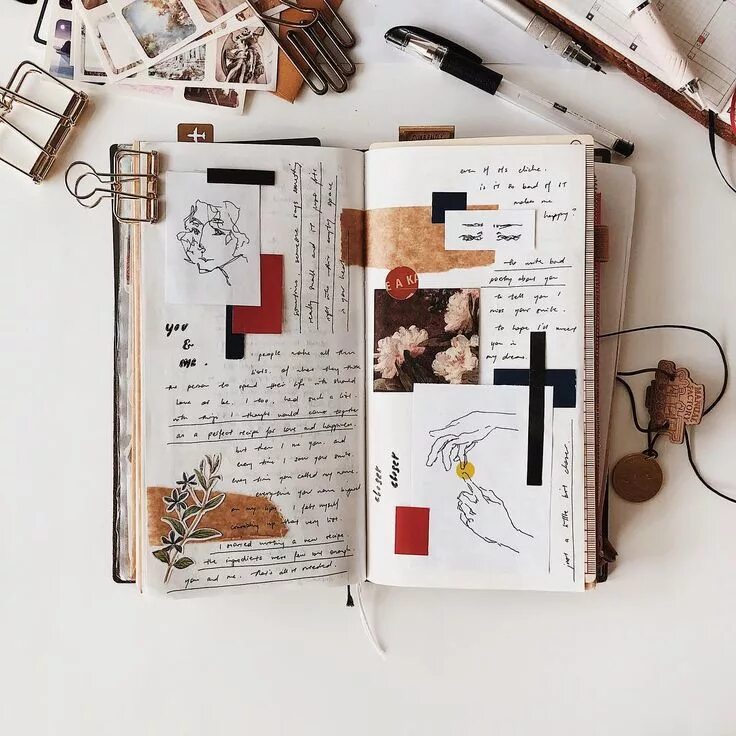 YOU
&
ME.
people make all these
lists. of what they those
the person to spend their life with should
love or be. I too, had such a list
with things I thought would come together
as a perfect recipe for love and happiness.
but then I met you. and
every time I saw your smile.
every time you called my name.
everytime your name
on my I felt myself
that very list.
I started writing a new recipe.
the ingredients were few but enough.
you and me. that's all it needed.
sometimes, someone says something
really small and it just fits
right into this empty space
in your heart
even if its cliche.
is it so bad if it
makes me
happy?
to write bad
poetry about you
to tell you I
miss your smile.
to hope I'll meet
you in
my dreams.
E A KA
closer
closer
just a little bit closer.